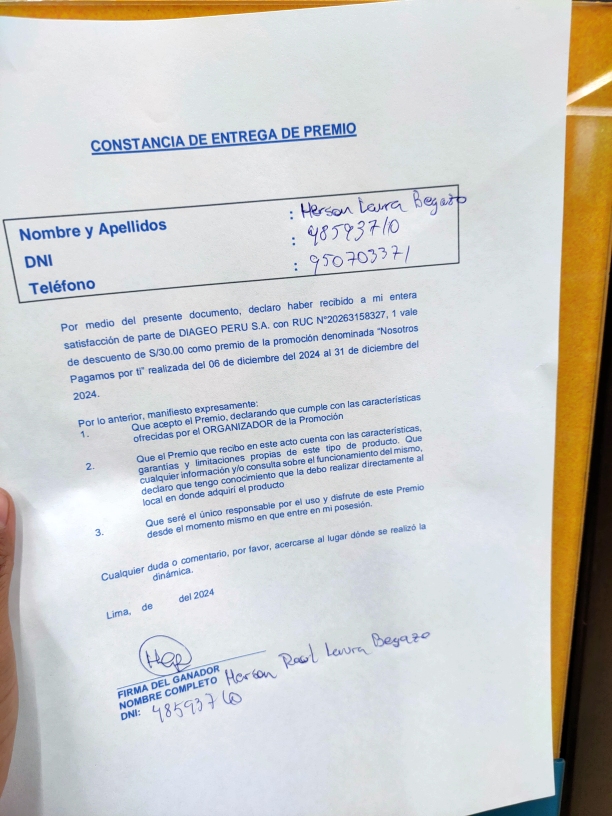 CONSTANCIA DE ENTREGA DE PREMIO
Nombre y Apellidos : Herson Laura Begazo
DNI : 48593710
Teléfono : 950703371
Por medio del presente documento, declaro haber recibido a mi entera
satisfacción de parte de DIAGEO PERU S.A. con RUC N°20263158327, 1 vale
de descuento de S/30.00 como premio de la promoción denominada "Nosotros
Pagamos por ti" realizada del 06 de diciembre del 2024 al 31 de diciembre del
2024.
Por lo anterior, manifiesto expresamente:
1. Que acepto el Premio, declarando que cumple con las características
ofrecidas por el ORGANIZADOR de la Promoción
2. Que el Premio que recibo en este acto cuenta con las características,
garantías y limitaciones propias de este tipo de producto. Que
cualquier información y/o consulta sobre el funcionamiento del mismo,
declaro que tengo conocimiento que la debo realizar directamente al
local en donde adquirí el producto
3. Que seré el único responsable por el uso y disfrute de este Premio
desde el momento mismo en que entre en mi posesión.
Cualquier duda o comentario, por favor, acercarse al lugar dónde se realizó la
dinámica.
Lima, de del 2024
FIRMA DEL GANADOR
NOMBRE COMPLETO Herson Raul Laura Begazo
DNI: 48593710